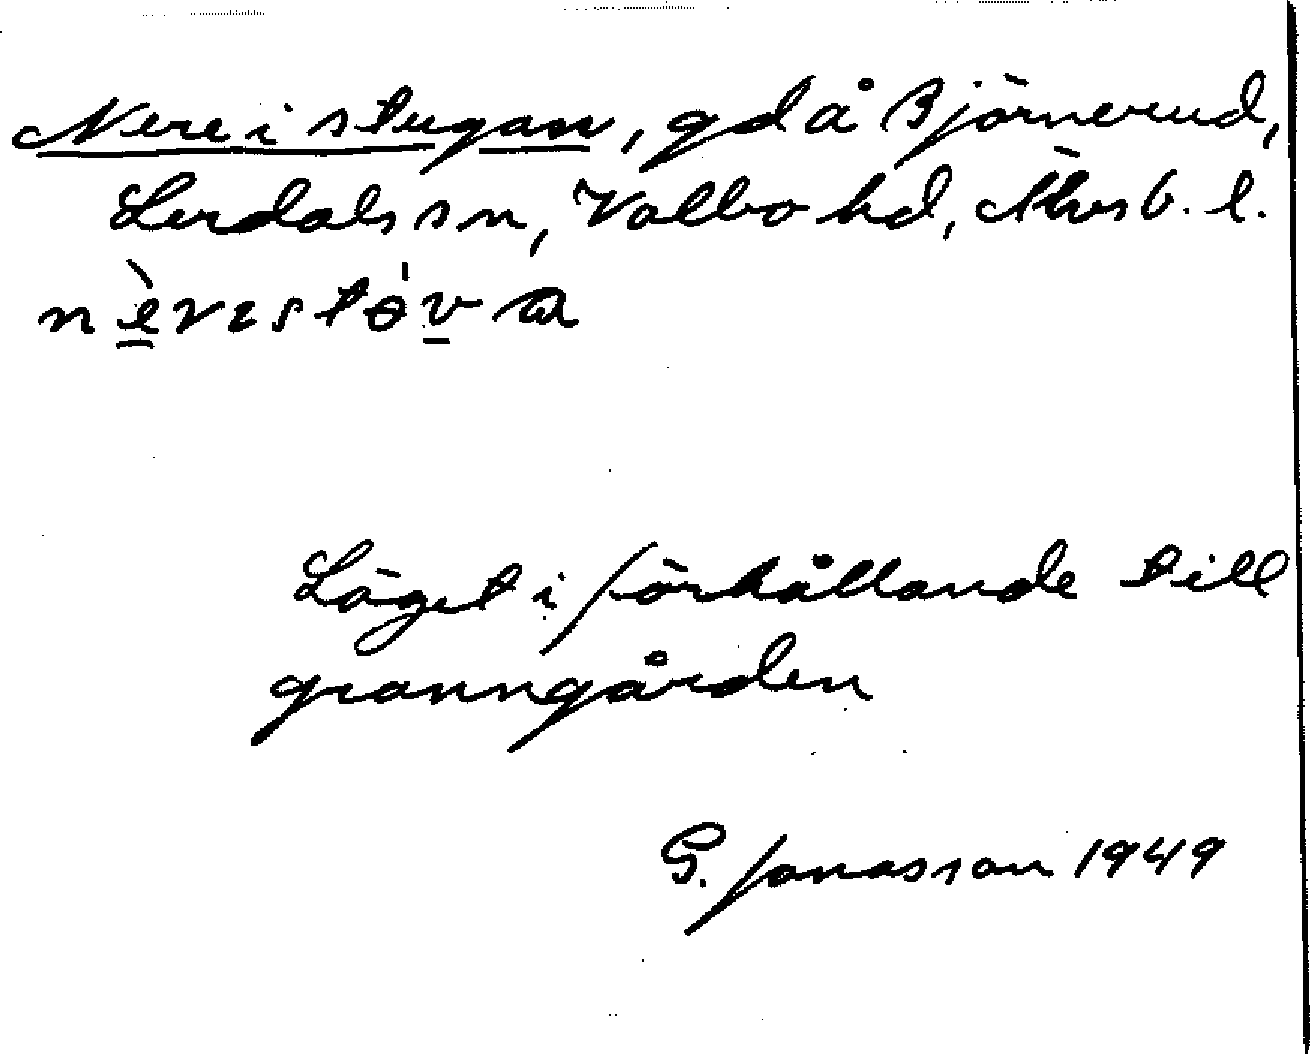 Nere i stugan, gd å Björnerud,
Lerdals sn, Valbo hd, Älvsb. l.
nè̱rɩstɵ́v̱a
Läget i förhållande till
granngården
G. Jonasson 1949